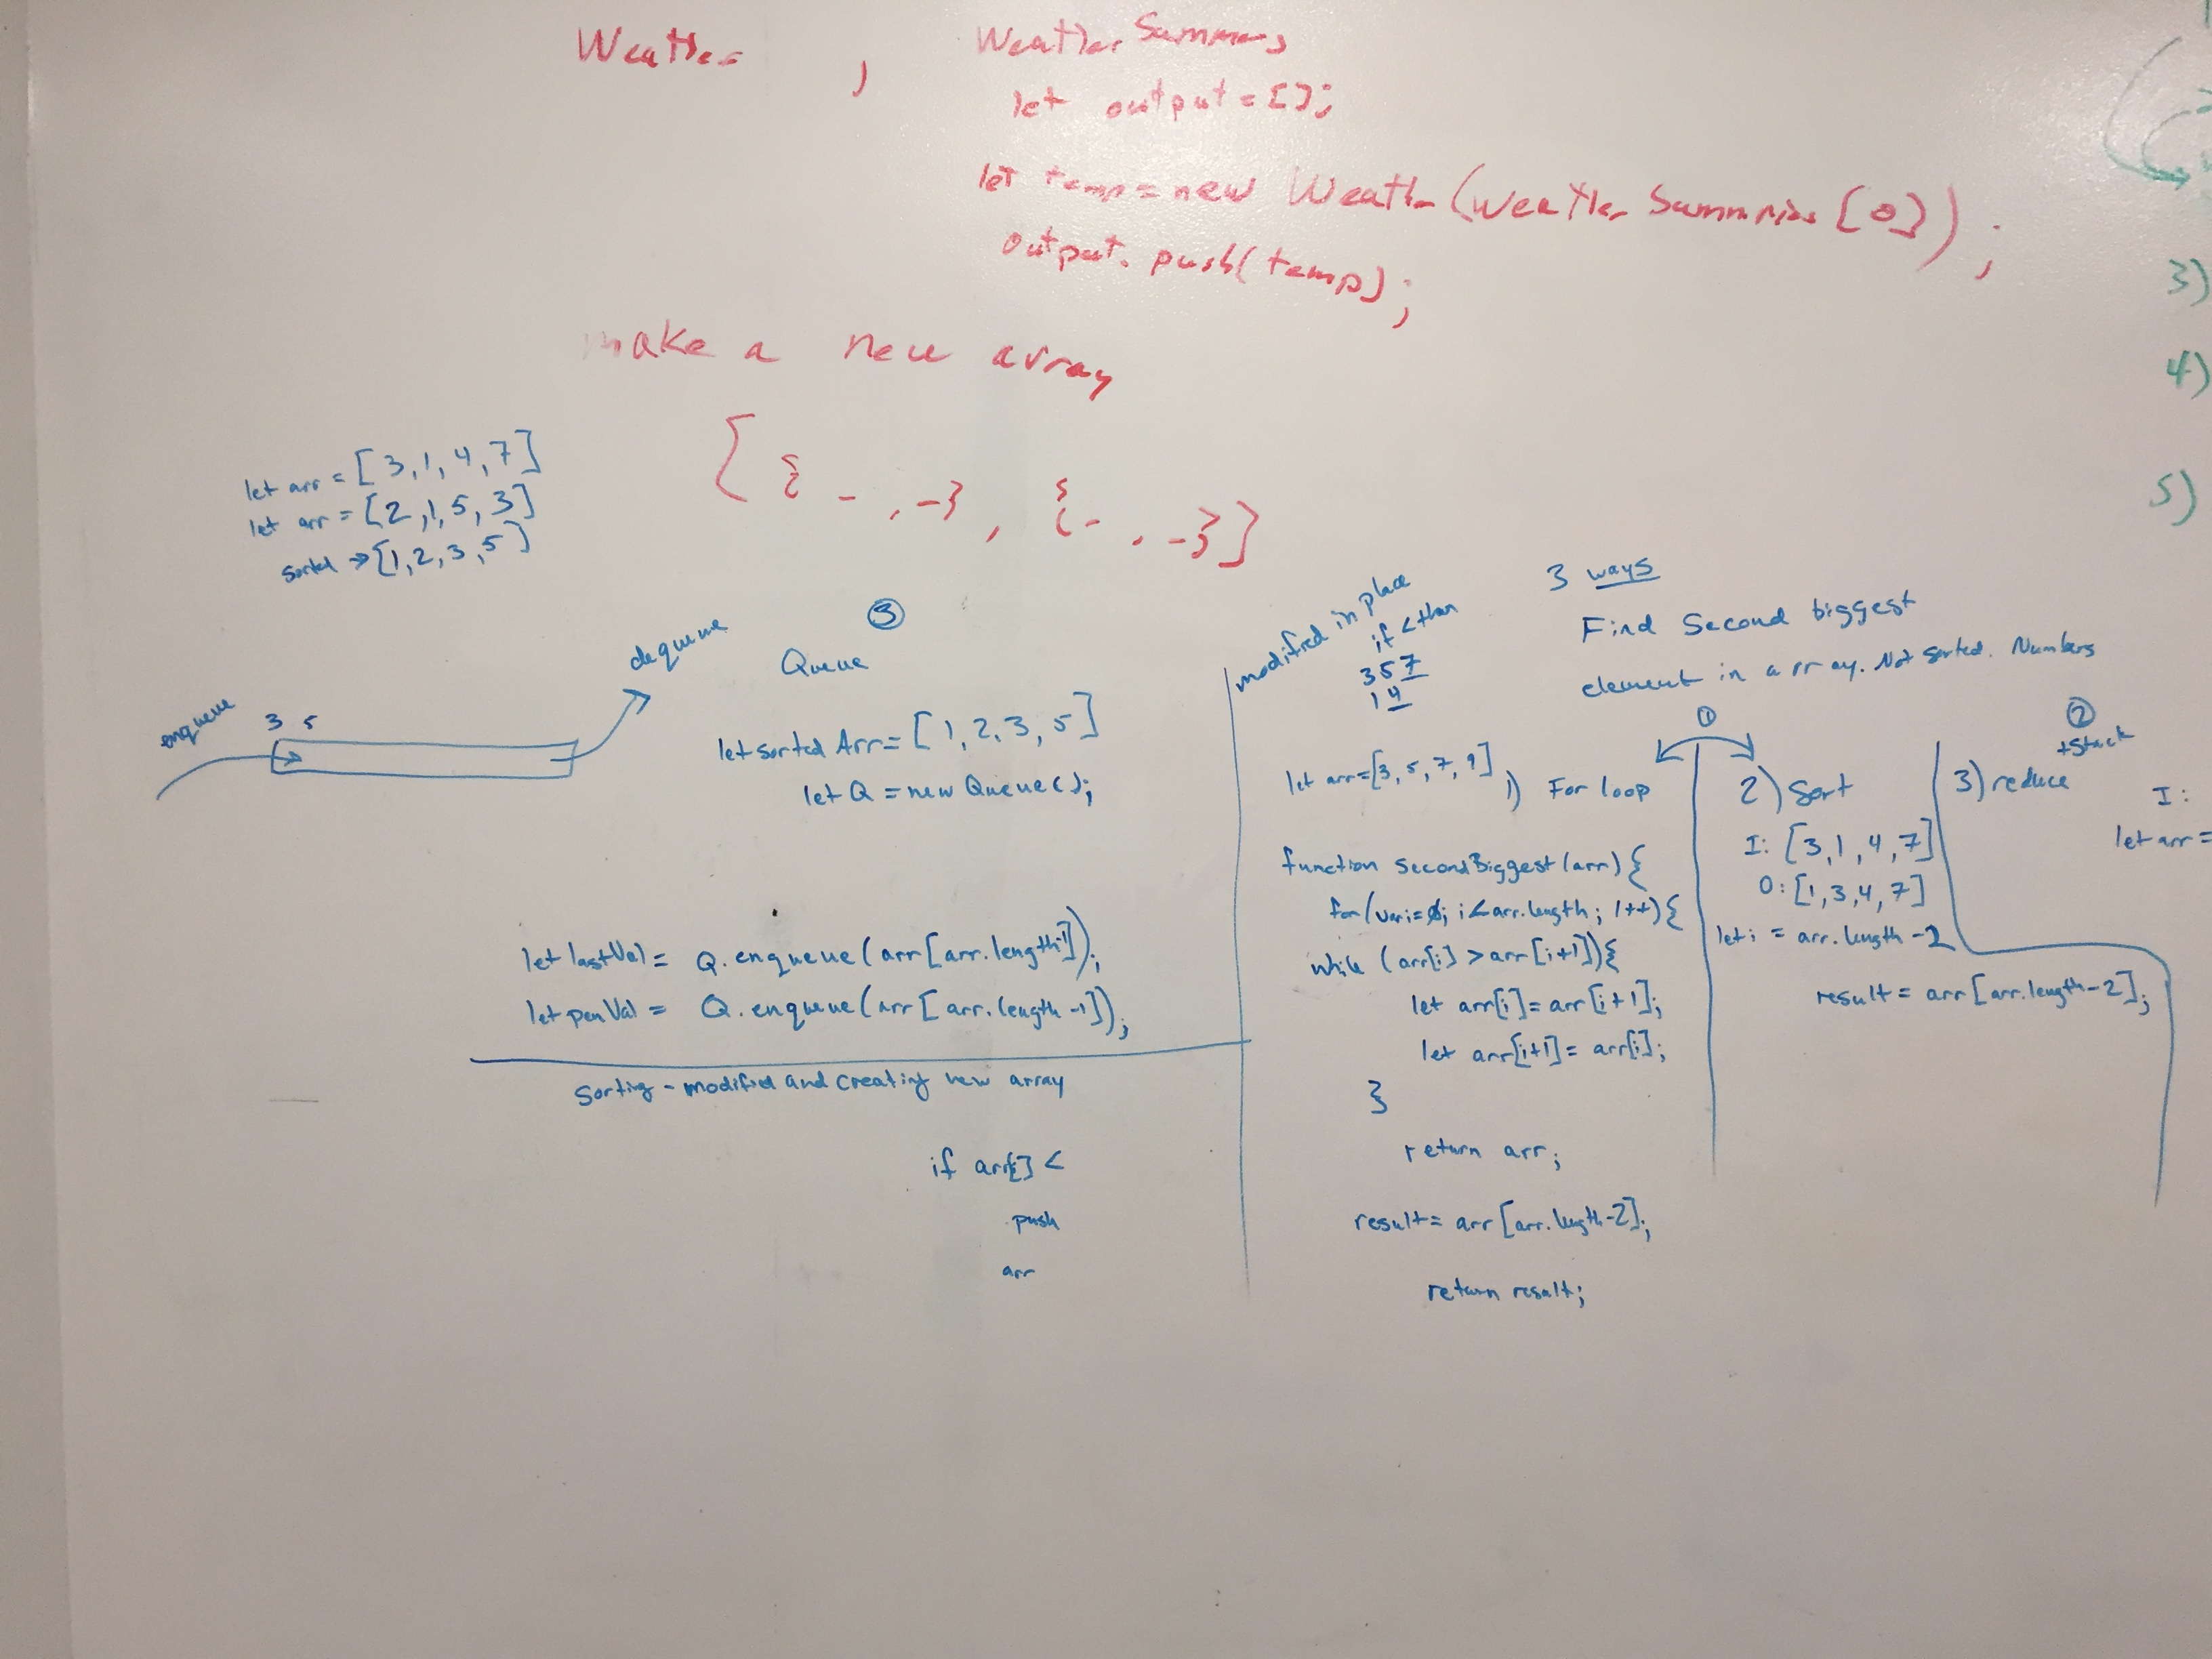 Weather , Weather Summary
let output = [];
let temp = new Weather (Weather Summaries [0]);
output. push(temp);
make a new array
[ { - , - } , { - , - } ]
let arr = [3, 1, 4, 7]
let arr = [2, 1, 5, 3]
sorted → [1, 2, 3, 5]
enqueue
3 5
dequeue
③
Queue
let sorted Arr = [1, 2, 3, 5]
let Q = new Queue();
let lastVal = Q. enqueue (arr [arr. length-1]);
let penVal = Q. enqueue (arr [arr. length -1]);
Sorting - modified and creating new array
if arr[i] <
push
arr
modified in place
if < than
3 5 7
1 4
3 ways
Find Second biggest
element in array. Not sorted. Numbers
①
let arr = [3, 5, 7, 9]
1) For loop
function secondBiggest (arr) {
for (var i=0; i < arr.length; i++) {
while (arr[i] > arr[i+1]) {
let arr[i] = arr[i+1];
let arr[i+1] = arr[i];
}
return arr;
result = arr [arr. length-2];
return result;
2) Sort
I: [3, 1, 4, 7]
O: [1, 3, 4, 7]
let i = arr. length -2
result = arr [arr. length-2];
②
+Stack
3) reduce
I:
let arr =
3)
4)
5)